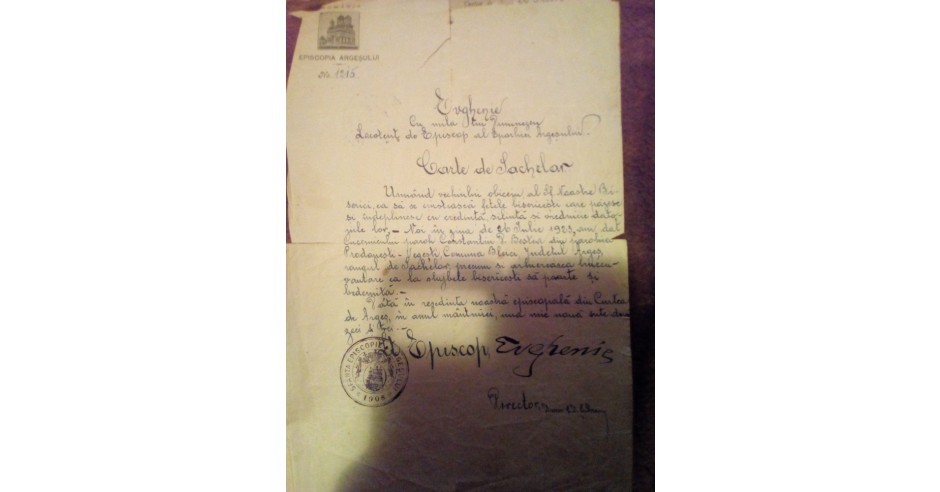 ROMÂNIA
EPISCOPIA ARGEȘULUI
No. 1215
Evghenie
Cu mila lui Dumnezeu
Locotenent de Episcop al Eparhiei Argeșului
Carte de Sachelar
Urmând vechiului obiceiu al Sf. Noastre Bi-
serici, ca să se cinstească fețele bisericești care păzesc
și îndeplinesc cu credință, silință și vrednicie dato-
riile lor. - Noi în ziua de 26 Iulie 1923, am dat
Cucernicului paroh Constantin din parohia
Comuna Județul Argeș
rangul de Sachelar, precum și
ca la slujbele bisericești să poarte și
bederniță. -
Dată în reședința noastră episcopală din Curtea
de Argeș, în anul mântuirei, una mie nouă sute două
zeci și trei. -
Episcop, Evghenie
SFÂNTA EPISCOPIE A ARGEȘULUI
1908